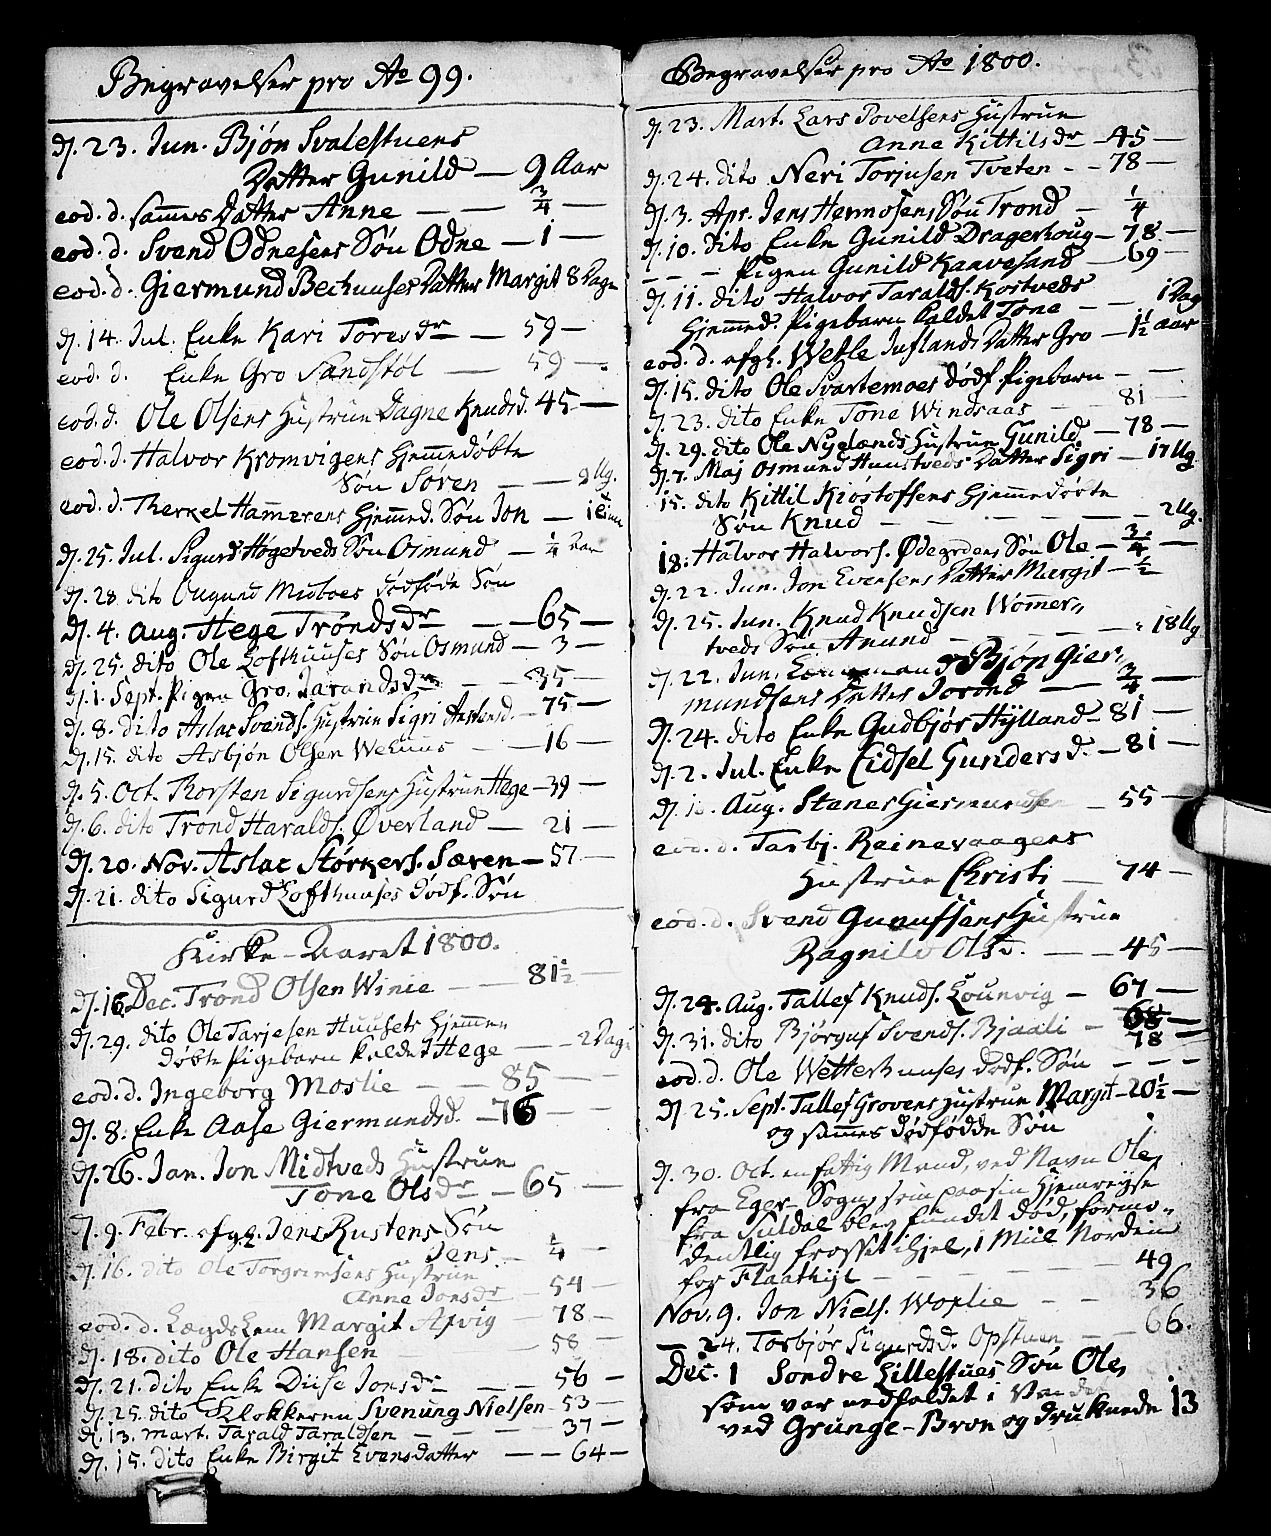 Begravelser pro Ao 99.
dj. 23. Jun. Bjøn Svalestuens
Datter Gunild — 9 Aar
eod. d. sammes Datter Anne — — 3/4 —
eod. d. Svend Odnesens Søn Odne — 1 —
eod. d. Giermund Bechuuses Datter Margit 8 Dage
dj. 14. Jul. Enke Kari Toresdr — 59 —
eod. d. Enke Gro Sandstøl — 59 —
eod. d. Ole Olsens Hustrue Dagne Knudsd. 45 —
eod. d. Halvor Kromvigens Hjemmedøbte
Søn Søren — — 9 Ug.
eod. d. Therkel Hamerens Hjemmed. Søn Jon — 1
dj. 25. Jul. Sigurd Høgetveds Søn Osmund — 1/4 Aar
dj. 28 dito Ougund Midboes dødføde Søn
dj. 4. Aug. Hege Trøndsdr — — 65 —
dj. 25. dito Ole Lofthuuses Søn Osmund — 3 —
dj. 1. Sept. Pigen Gro Tarandsdr — 35 —
dj. 8. dito Aslac Svends. Hustrue Sigri Anstensd. — 75 —
dj. 15. dito Asbjøn Olsen Wehuus — — 16 —
dj. 5. Oct. Thorsten Sigurdsens Hustrue Hege — 39 —
dj. 6. dito Trond Haralds. Øverland — 21 —
dj. 20. Nov. Aslac Størkers. Særen — 57 —
dj. 21. dito Sigurd Lofthuuses dødf. Søn
Kirke-Aaret 1800.
dj. 16 Dec. Trond Olsen Winie — — 81 1/2 —
dj. 29. dito Ole Tarjesen Huusets Hjemme-
døbte Pigebarn kaldet Hege — — 2 Dage
eod. d. Ingeborg Moslie — — 85 —
dj. 8. Enke Aase Giermundsd. — 76 —
dj. 26. Jan. Jon Midtveds Hustrue
Tone Olsdr — 65 —
dj. 9. Febr. afgl. Jens Rustens Søn
Jens — 1/4 —
dj. 16. dito Ole Torgrimsens Hustrue
Anne Jonsdr — 54 —
eod. d. Lægdslem Margit Asvig — 78 —
dj. 18. dito Ole Hansen — 58 —
dj. 21. dito Enke Diise Jonsdr — — 56 —
dj. 25. dito Klokkeren Svenung Nielsen — 53 —
dj. 13. Mart. Tarald Taraldsen — — — 37 —
dj. 15. dito Enke Birgit Evensdatter — — 64 —
Begravelser pro Ao 1800.
dj. 23. Mart. Lars Povelsens Hustrue
Anne Kittilsdr — 45 —
dj. 24. dito Neri Torjusen Tveten — — 78 —
dj. 3. Apr. Jens Hermosens Søn Trond — 1/4
dj. 10. dito Enke Gunild Dragerhoug — 78 —
— — — Pigen Gunild Kaavesand — 69 —
dj. 11. dito Halvor Taralds. Kostveds
Hjemmed. Pigebarn kaldet Tone — — 1 Dag
eod. d. afgl. Wetle Juslands Datter Gro — 1 1/2 Aar
dj. 15. dito Ole Svartemoes dødf. Pigebarn — —
dj. 23. dito Enke Tone Windsaas — 81 —
dj. 29. dito Ole Nyelands Hustrue Gunild — 78 —
dj. 7. Maj Osmund Hunstveds Datter Sigri — 17 Ug.
15. dito Kittil Kiøstolfsens Hjemmedøbte
Søn Knud — — — — — 2 Ug.
18. Halvor Halvors. Ødegrdens Søn Ole — 3/4 —
dj. 22. Jun. Jon Evensens Datter Margit — 1/2
dj. 25. Jun. Knud Knudsen Wommer-
tveds Søn Anund — — — — 18 Ug.
dj. 22. Jun. Bjøn Gier-
mundsens Datter Jorond — 3/4 —
dj. 24. dito Enke Gudbjør Hylland — 81 —
dj. 2. Jul. Enke Eidsel Gundersd. — 81 —
Aug. Stanes Giermundsen — 55 —
eod. d. Tarbj. Reinevaagens
Hustrue Christi — 74 —
eod. d. Svend Gunufsens Hustrue
Ragnild Olsd. — — 45 —
dj. 24. Aug. Tallef Knuds. Lounvig — 67 —
dj. 31. dito Bjørguf Svends. Bjaali — 68 78 —
eod. d. Ole Wetterhuuses dødf. Søn — — —
dj. 25. Sept. Tallef Grovens Hustrue Margit — 20 1/2 —
og sammes dødfødde Søn
dj. 30. Oct. en fattig Mand, ved Navn Ole,
fra Eger-Sogn, som paa sin Hjemreyse
fra Suldal blev fundet død, formo-
dentlig frosset ihjel, 1 Miil Norden
for Flaathyl — — — — — 49
Nov. 9. Jon Niels. Woxlie — — 36
— 24. Torbjør Sigurdsd. Opstuen — — 66.
Dec. 1 Sondre Lillestues Søn Ole,
som var nedfaldet i Vandet
ved Grunge-Broe og druknede 13